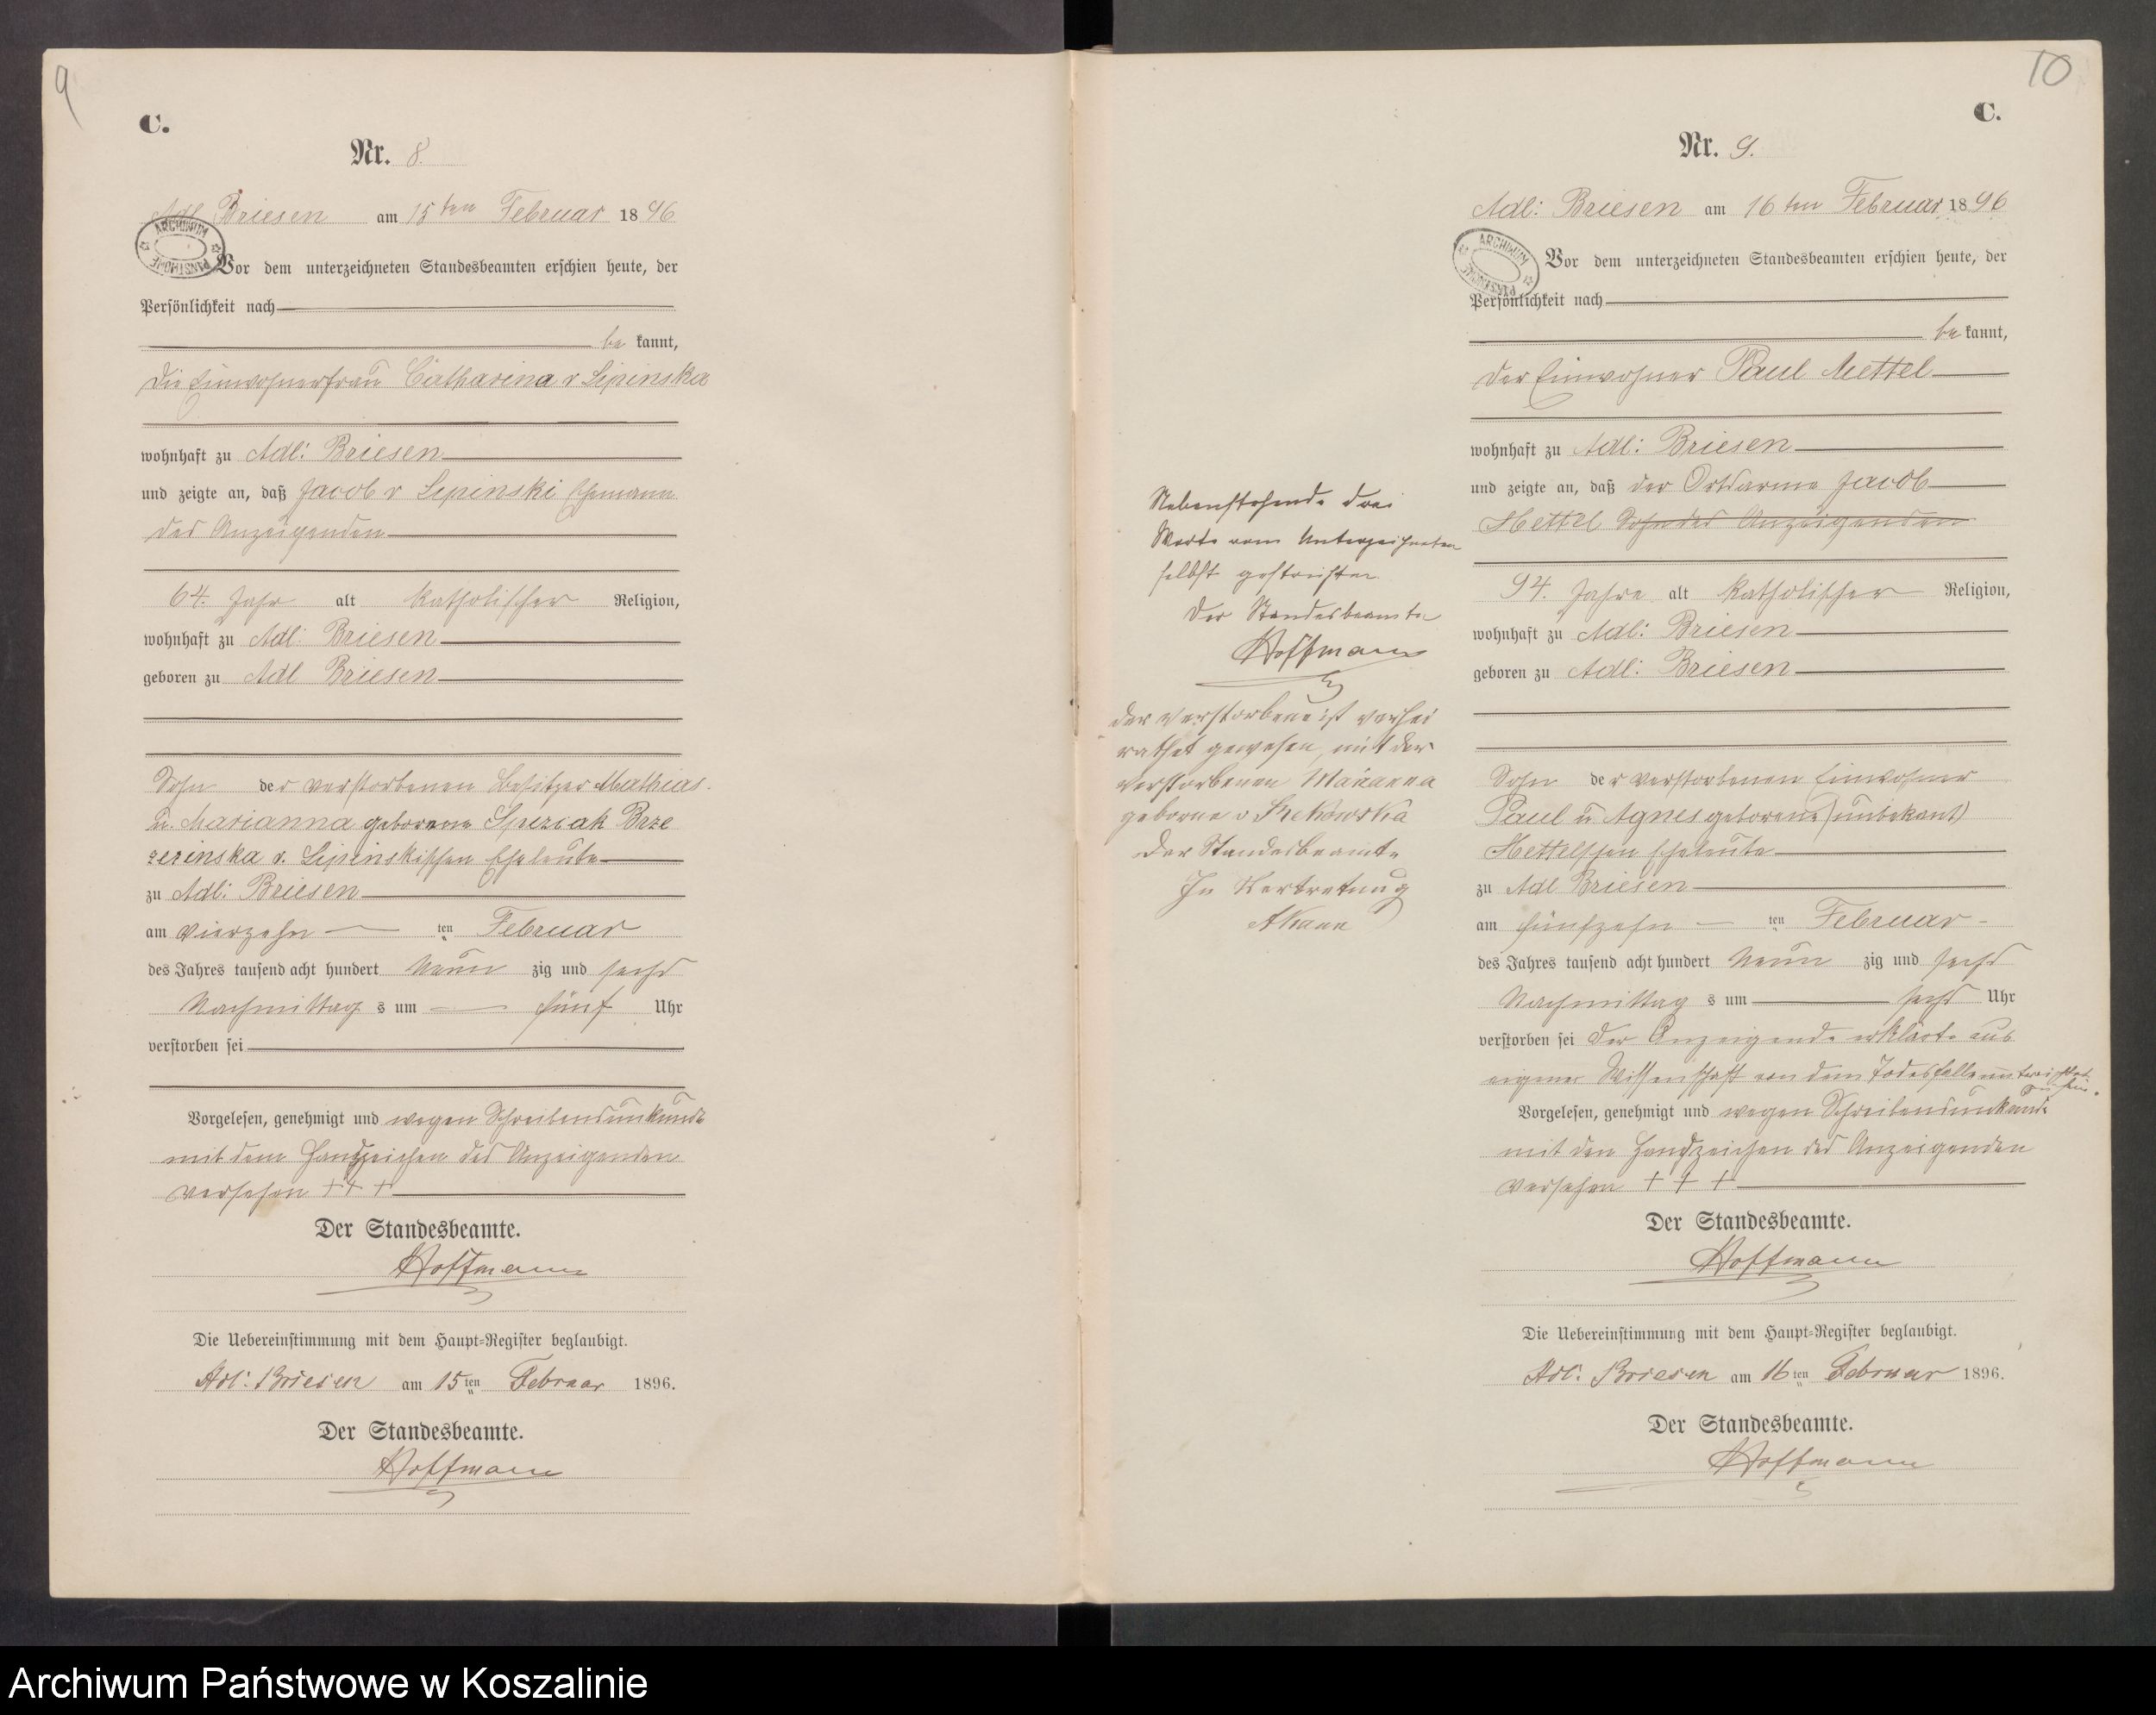 9
C.
Nr. 8.
Adl. Briesen am 15ten Februar 1896
ARCHIWUM PAŃSTWOWE
Vor dem unterzeichneten Standesbeamten erschien heute, der
Persönlichkeit nach
bekannt,
die Einwohnerfrau Catharina v Lipinska
wohnhaft zu Adl: Briesen
und zeigte an, daß Jacob v Lipinski Ehemann
des Anzeigenden
64. Jahr alt katholischer Religion,
wohnhaft zu Adl: Briesen
geboren zu Adl Briesen
Sohn der verstorbenen Besitzer Mathias
u. Marianna geborene Brze
zezinska v. Lipinskischen Eheleute
zu Adl: Briesen
am vierzehn ten Februar
des Jahres tausend acht hundert neun zig und sechs
Nachmittag s um fünf Uhr
verstorben sei
Vorgelesen, genehmigt und wegen Schreibensunkunde
mit dem Handzeichen des Anzeigenden
versehen +++
Der Standesbeamte.
Hoffmann
Die Uebereinstimmung mit dem Haupt=Register beglaubigt.
Adl: Briesen am 15ten Februar 1896.
Der Standesbeamte.
Hoffmann
10
C.
Nr. 9.
Adl: Briesen am 16ten Februar 1896
ARCHIWUM PAŃSTWOWE
Vor dem unterzeichneten Standesbeamten erschien heute, der
Persönlichkeit nach
bekannt,
der Einwohner Paul Hettel
wohnhaft zu Adl: Briesen
und zeigte an, daß der Ortsarme Jacob
Hettel Sohn des Anzeigenden
94. Jahre alt katholischer Religion,
wohnhaft zu Adl: Briesen
geboren zu Adl: Briesen
Sohn der verstorbenen Einwohner
Paul u Agnes geborene (unbekant)
Hettelschen Eheleute
zu Adl Briesen
am fünfzehn ten Februar
des Jahres tausend acht hundert neun zig und sechs
Nachmittag s um sechs Uhr
verstorben sei der Anzeigende erklärte aus
eigener Wissenschaft von dem Todesfalle unterrichtet
zu sein.
Vorgelesen, genehmigt und wegen Schreibensunkunde
mit den Handzeichen des Anzeigenden
versehen + + +
Der Standesbeamte.
Hoffmann
Die Uebereinstimmung mit dem Haupt=Register beglaubigt.
Adl: Briesen am 16ten Februar 1896.
Der Standesbeamte.
Hoffmann
Nebenstehende drei
Worte vom Unterzeichneten
selbst gestrichen.
Der Standesbeamte
Hoffmann
der Verstorbene ist verhei
rathet gewesen, mit der
verstorbenen Marianna
geborne v
Der Standesbeamte
In Vertretung
Archiwum Państwowe w Koszalinie